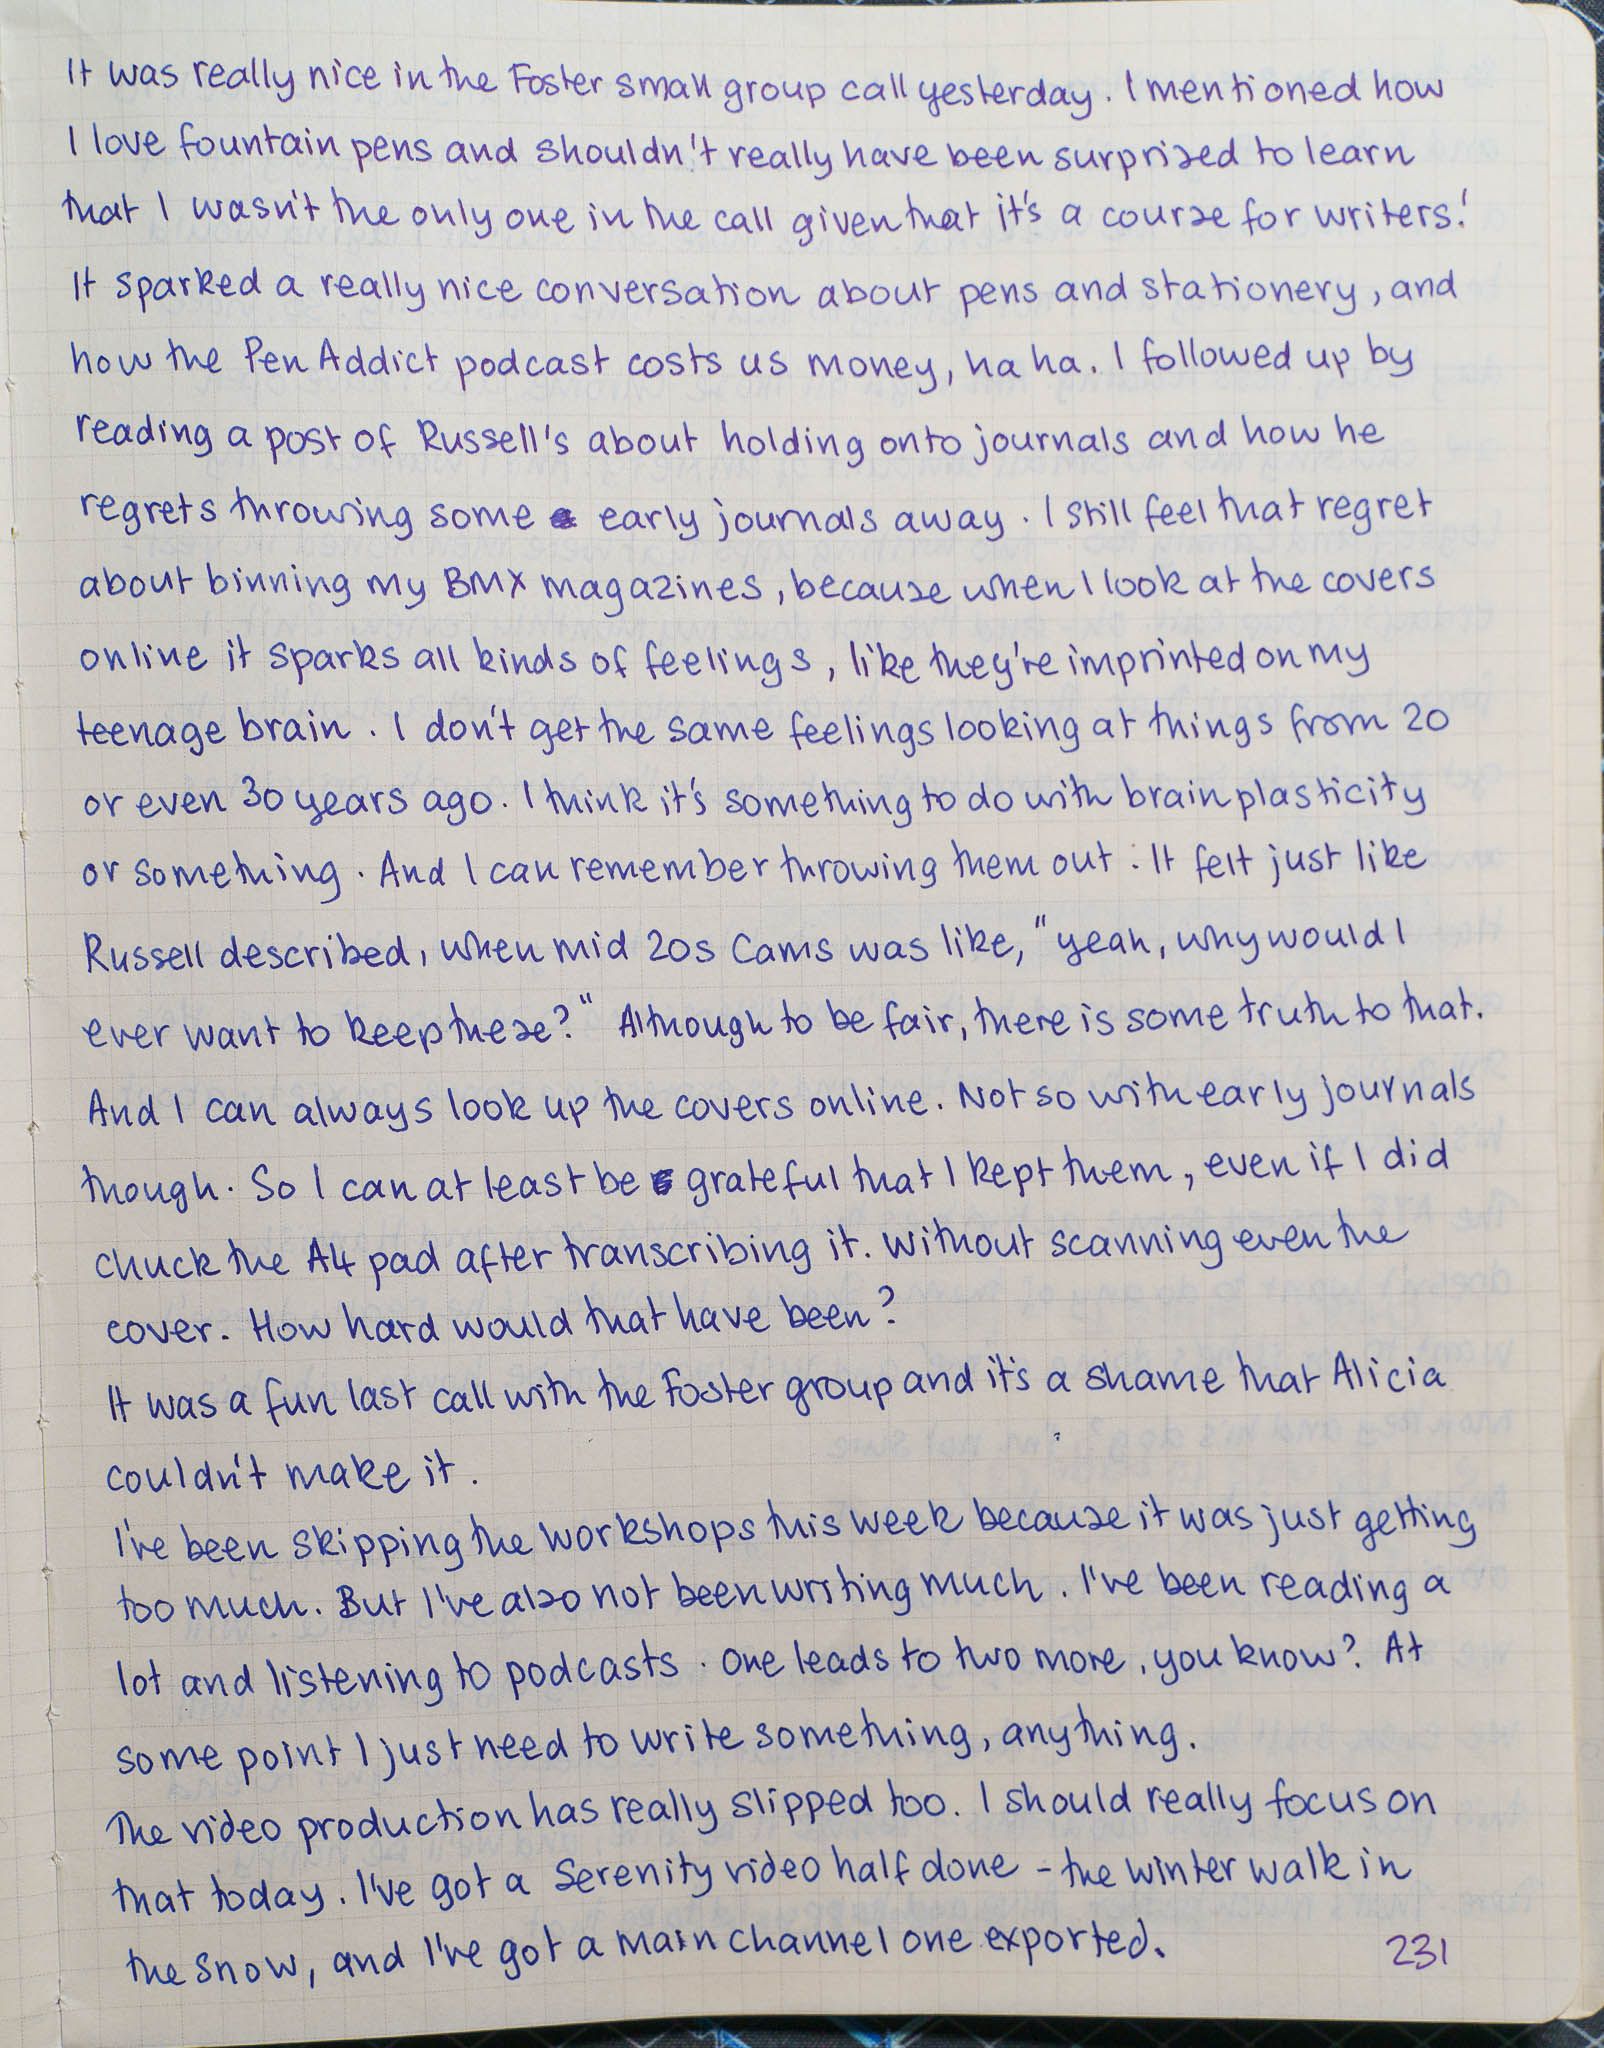 It was really nice in the Foster small group call yesterday. I mentioned how
I love fountain pens and shouldn't really have been surprised to learn
that I wasn't the only one in the call given that it's a course for writers!
It sparked a really nice conversation about pens and stationery, and
how the Pen Addict podcast costs us money, ha ha. I followed up by
reading a post of Russell's about holding onto journals and how he
regrets throwing some early journals away. I still feel that regret
about binning my BMX magazines, because when I look at the covers
online it sparks all kinds of feelings, like they're imprinted on my
teenage brain. I don't get the same feelings looking at things from 20
or even 30 years ago. I think it's something to do with brain plasticity
or something. And I can remember throwing them out. It felt just like
Russell described, when mid 20s Cams was like, "yeah, why would I
ever want to keep these?" Although to be fair, there is some truth to that.
And I can always look up the covers online. Not so with early journals
though. So I can at least be grateful that I kept them, even if I did
chuck the A4 pad after transcribing it. Without scanning even the
cover. How hard would that have been?
It was a fun last call with the Foster group and it's a shame that Alicia
couldn't make it.
I've been skipping the workshops this week because it was just getting
too much. But I've also not been writing much. I've been reading a
lot and listening to podcasts. One leads to two more, you know? At
some point I just need to write something, anything.
The video production has really slipped too. I should really focus on
that today. I've got a Serenity video half done - the winter walk in
the snow, and I've got a main channel one exported.
231